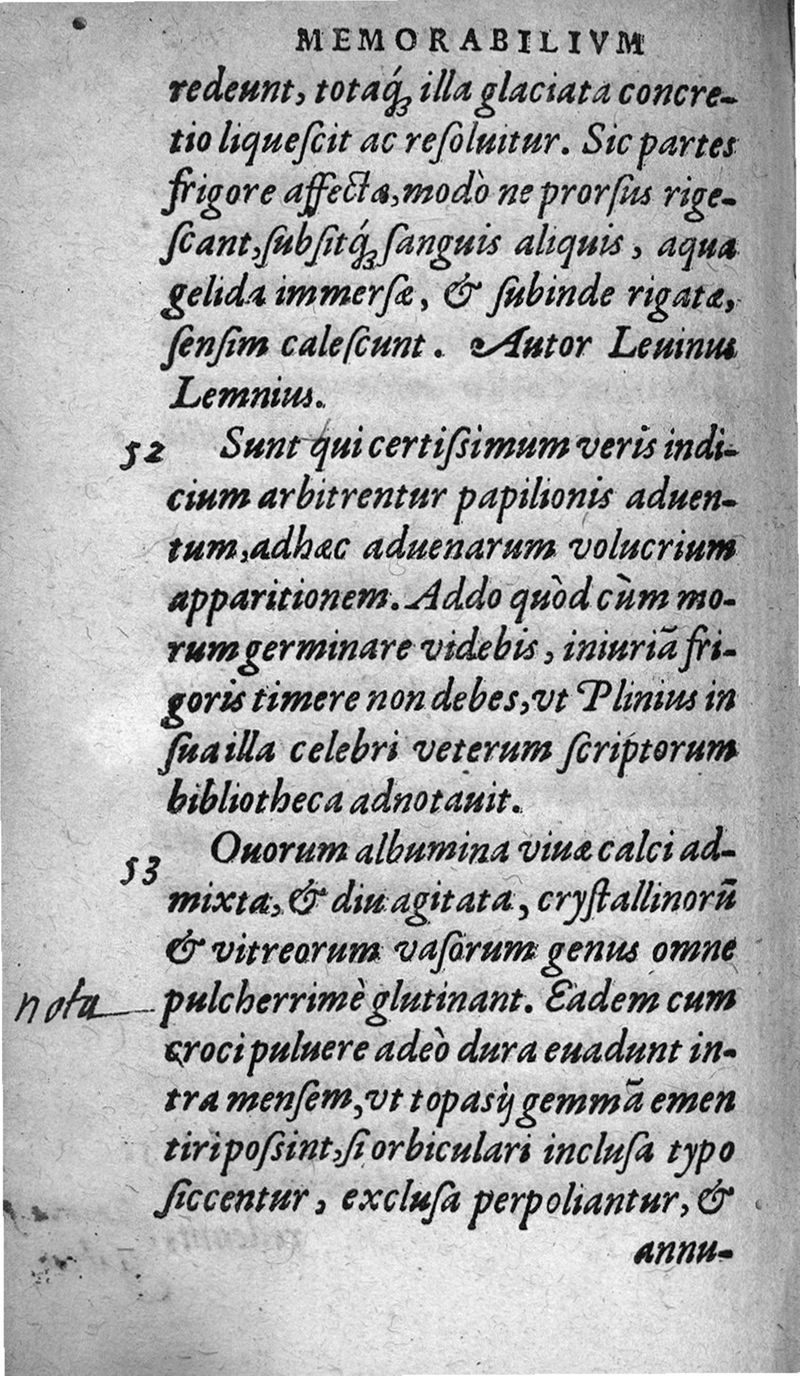 MEMORABILIVM
redeunt, totaq́ꝫ illa glaciata concre-
tio liqueſcit ac reſoluitur. Sic partes
frigore affectæ, modò ne prorſus rige-
ſcant, ſubſitq́ꝫ ſanguis aliquis, aqua
gelida immerſæ, & ſubinde rigatæ,
ſenſim caleſcunt. Autor Leuinus
Lemnius.
52 Sunt qui certiſsimum veris indi-
cium arbitrentur papilionis aduen-
tum, adhæc aduenarum volucrium
apparitionem. Addo quòd cùm mo-
rum germinare videbis, iniuriã fri-
goris timere non debes, vt Plinius in
ſua illa celebri veterum ſcriptorum
bibliotheca adnotauit.
53 Ouorum albumina viuæ calci ad-
mixta, & diu agitata, cryſtallinorũ
& vitreorum vaſorum genus omne
nota pulcherrimè glutinant. Eadem cum
croci puluere adeò dura euadunt in-
tra menſem, vt topasij gemmã emen
tiri poſsint, ſi orbiculari incluſa typo
ſiccentur, excluſa perpoliantur, &
annu-